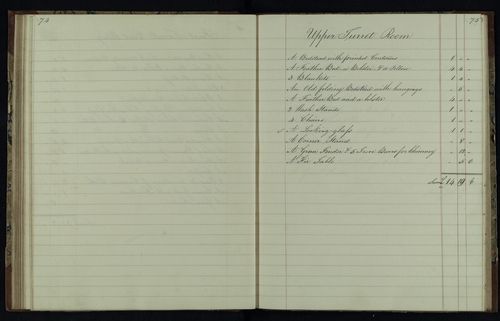 74
75
Upper Turret Room
A Bedstead with printed Curtains 1 " "
A Feather Bed a Bolster & a Pillow 4 4 "
3 Blankets 1 " "
An Old folding Bedstead with hangings " 5 "
A Feather Bed and a bolster 4 " "
2 Wash Stands 1 "
4 Chairs 1 "
A Looking glass 1 1 "
A Corner Stand " 8 "
A Fender & 5 Iron for Chimney " "
A Fir Table " 5 6
14 19 6